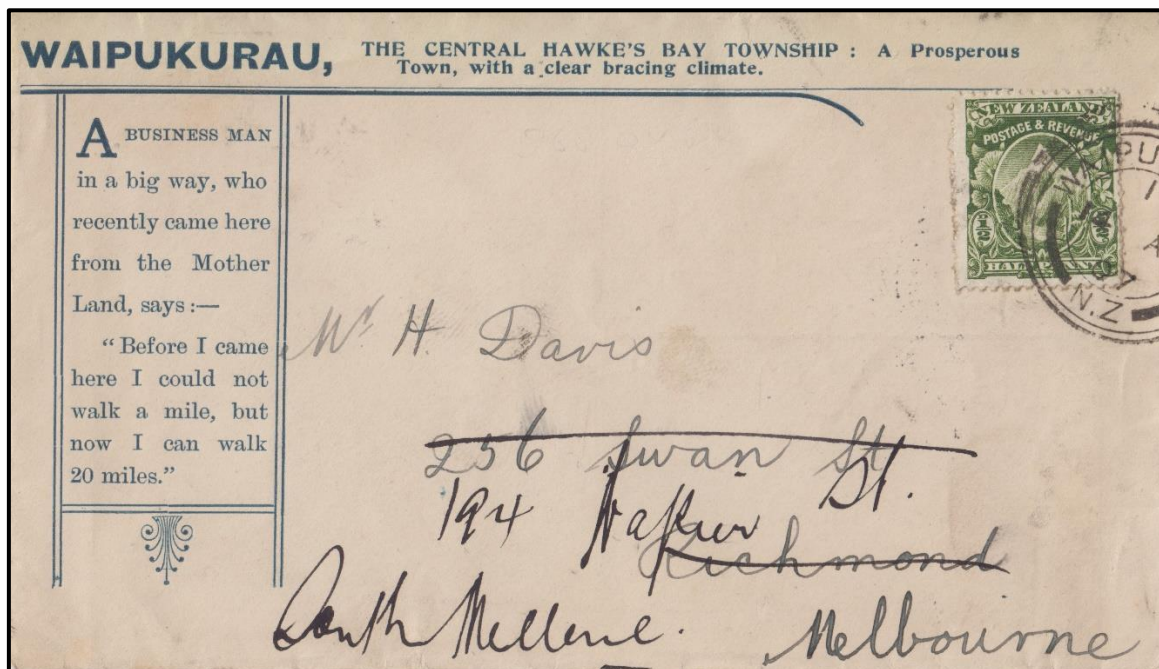 WAIPUKURAU, THE CENTRAL HAWKE'S BAY TOWNSHIP : A Prosperous
Town, with a clear bracing climate.
A BUSINESS MAN
in a big way, who
recently came here
from the Mother
Land, says :—
“Before I came
here I could not
walk a mile, but
now I can walk
20 miles.”
NEW ZEALAND
POSTAGE & REVENUE
½ ½
HALF PENNY
WAIPU
1
14 A
07
N.Z
Mr H. Davis
256 Swan St
194 Napier St.
Richmond
South Melbene.
Melbourne